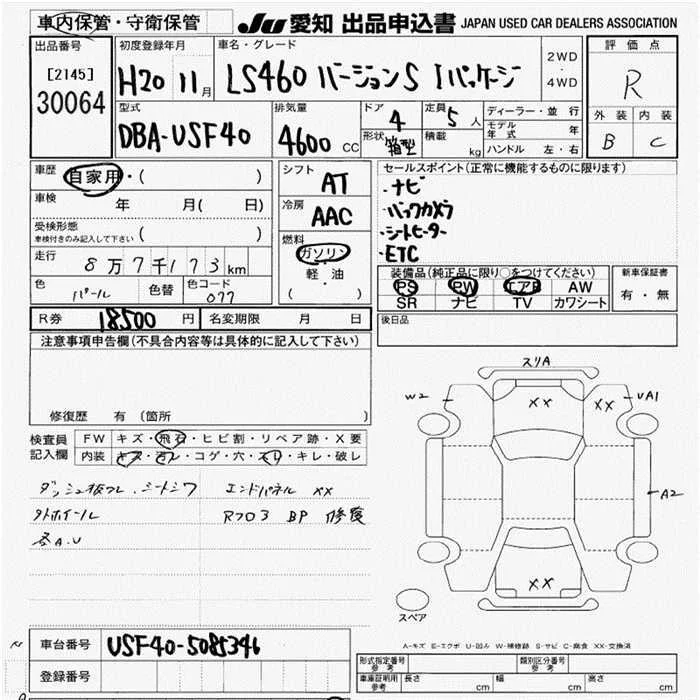 車内保管・守衛保管
JU 愛知 出品申込書 JAPAN USED CAR DEALERS ASSOCIATION
出品番号
[2145]
30064
初度登録年月
H20 11月
車名・グレード
LS460 バージョンS Iパッケージ
2WD
・
4WD
評価点
R
外装 内装
B C
型式
DBA-USF40
排気量
4600 CC
ドア
4
形状
箱型
定員
5人
積載
kg
ディーラー・並行
モデル年式 年
ハンドル 左・右
車歴
自家用・( )
車検 年 月( 日)
受検形態
車検付きのみ記入して下さい ( )
走行
8万7千173km
色
パール
色替
色コード
077
シフト
AT
冷房
AAC
燃料
ガソリン
・
軽・油
( ・ )
セールスポイント(正常に機能するものに限ります)
・ナビ
・バックカメラ
・シートヒーター
・ETC
装備品(純正品に限り○をつけてください)
PS PW エアB AW
SR ナビ TV カワシート
新車保証書
有・無
R券 18500円 名変期限 月 日
後日品
注意事項申告欄(不具合内容等は具体的に記入して下さい)
修復歴 有 (箇所 )
検査員
記入欄
FW キズ・飛石・ヒビ割・リペア跡・X要
内装 キズ・汚レ・コゲ・穴・スレ・キレ・破レ
ダッシュ板フレ. シートシワ エンドパネル XX
外ホイール Rフロア BP 修復
各A.U
スリA
W2
XX
XX
UA1
A2
XX
スペア
A-キズ E-エクボ U-凹み W-補修跡 S-サビ C-腐食 XX-交換済
車台番号 USF40-5085346
登録番号
形式指定番号
参考
類別区分番号
参考
車庫証明用
参考
長さ cm 幅 cm 高さ cm